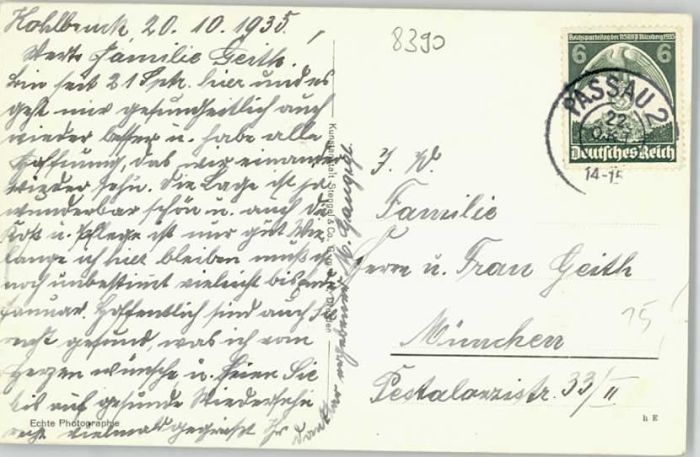 Kohlbruck, 20. 10. 1935.
Werte Familie Geith.
bin seit 21 Sept. hier und es
geht mir gesundheitlich auch
wieder besser u. habe alle
Hoffnung, das wir einander
wieder sehn. Die Lage ist so
wunderbar schön u. auch die
Kost u. Pflege ist nur gut Wie
lange ich hier bleiben muß ist
noch unbestimmt vieleicht bis
Januar. Hoffentlich sind auch Sie
recht gesund, was ich vom
Herzen wünsche u. seien Sie
bis auf gesunde Wiedersehn
recht vielmals gegrüßt Ihr
dankbar ergebener M.
Echte Photographie
Kunstanstalt Stengel & Co. Dresden
8390
Reichsparteitag der NSDAP Nürnberg 1935
6 6
Deutsches Reich
PASSAU 2
22
OKT
14-15
Familie
Herrn u. Frau Geith
München
Pestalozzistr. 33/II
15
h E